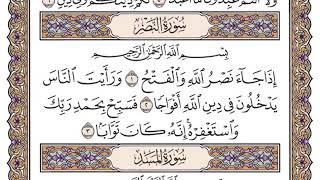 وَلَا أَنتُمْ عَٰبِدُونَ مَا أَعْبُدُ ۝ لَكُمْ دِينُكُمْ وَلِيَ دِينِ ۝
سُورَةُ النَّصْرِ
بِسْمِ اللَّهِ الرَّحْمَٰنِ الرَّحِيمِ
إِذَا جَاءَ نَصْرُ اللَّهِ وَالْفَتْحُ ۝١ وَرَأَيْتَ النَّاسَ
يَدْخُلُونَ فِي دِينِ اللَّهِ أَفْوَاجًا ۝٢ فَسَبِّحْ بِحَمْدِ رَبِّكَ
وَاسْتَغْفِرْهُ إِنَّهُ كَانَ تَوَّابًا ۝٣
سُورَةُ الْمَسَدِ